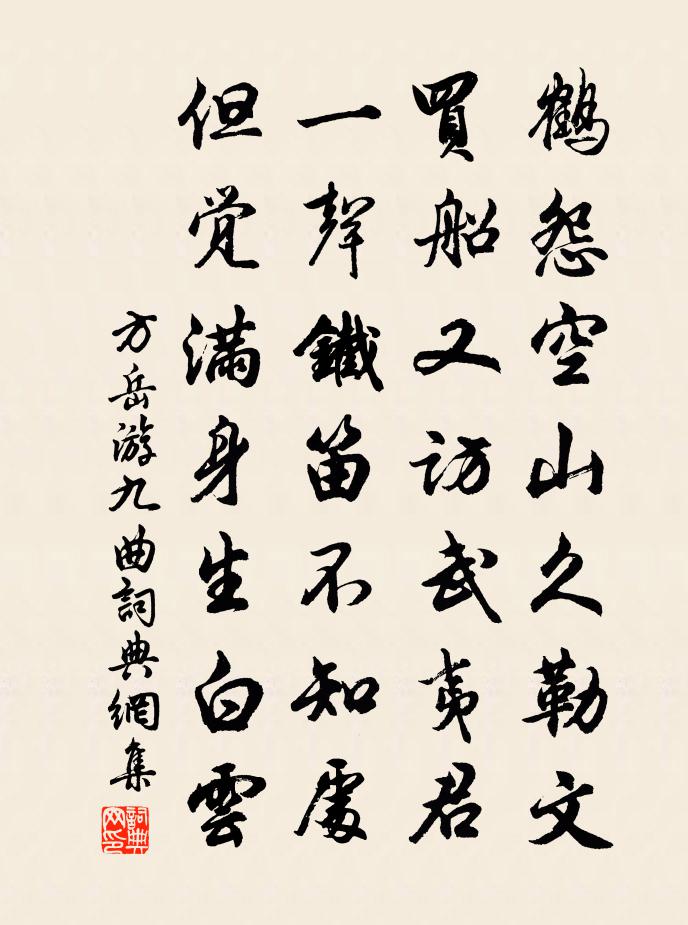 鶴怨空山久勒文
買船又訪武夷君
一聲鐵笛不知處
但觉滿身生白雲
方岳游九曲詞典網集
詞典網印